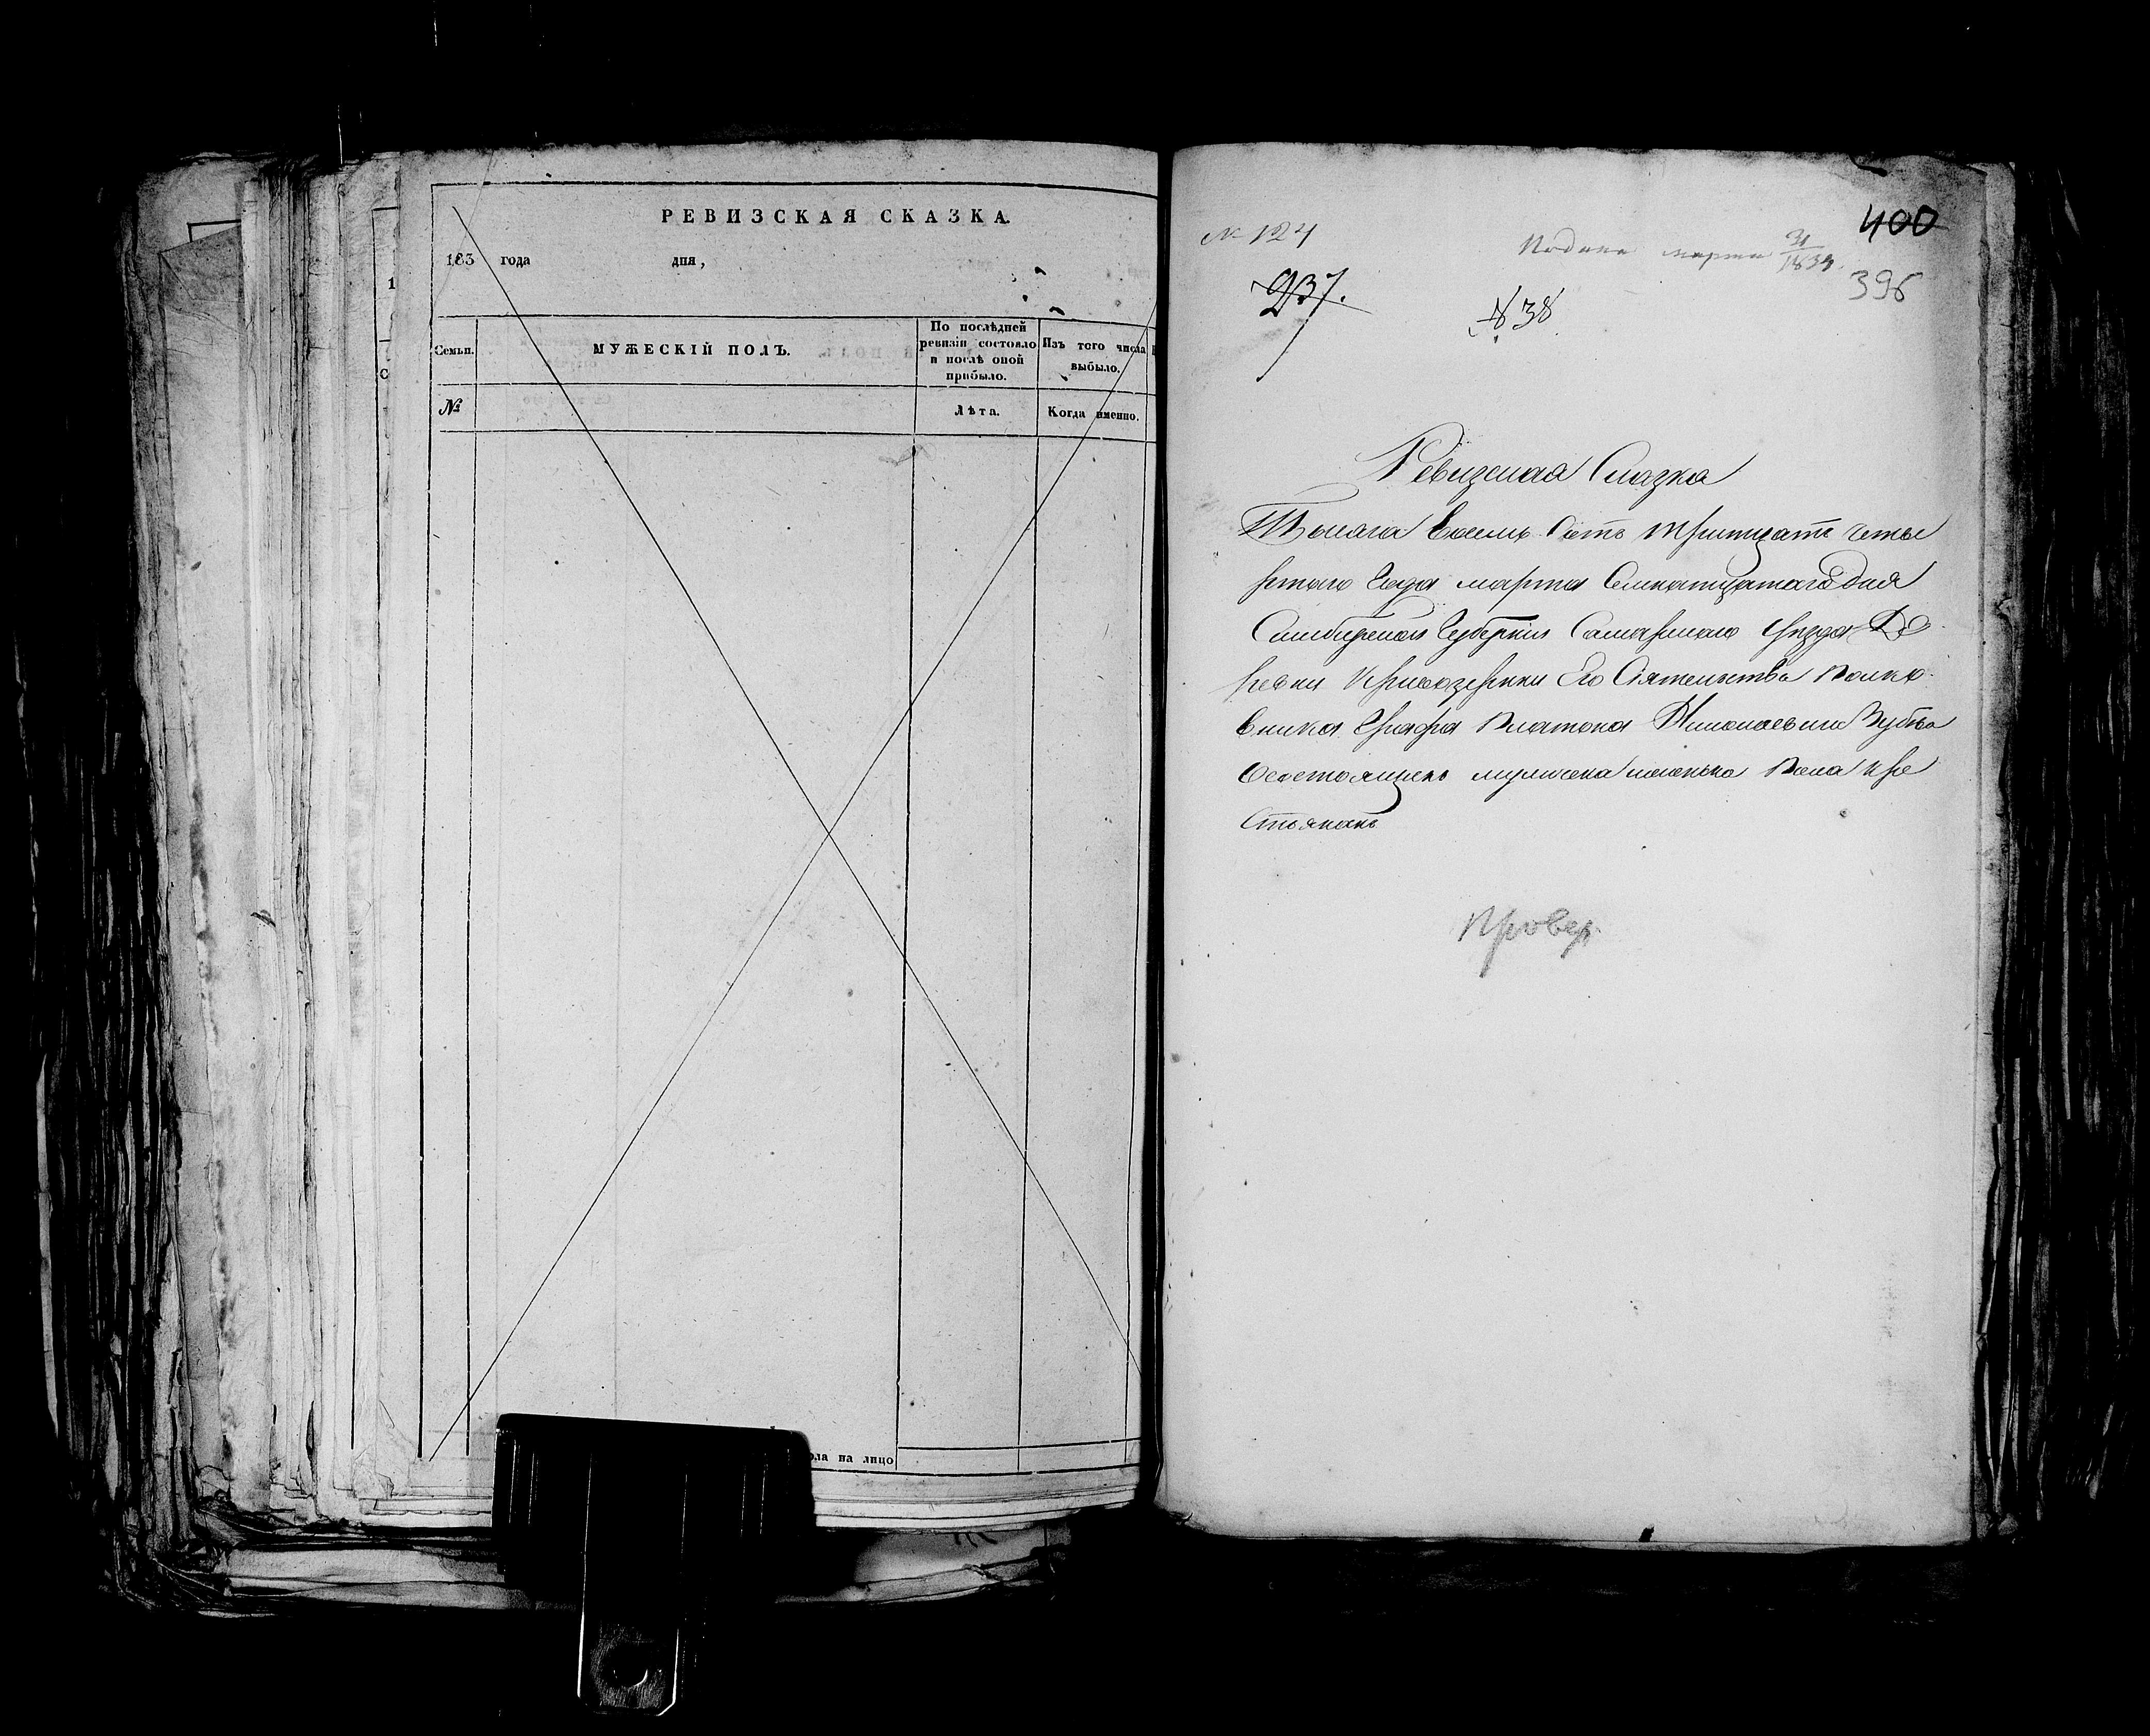 РЕВИЗСКАЯ СКАЗКА.
183 года дня,
Семьи. МУЖЕСКІЙ ПОЛЪ. По послѣдней ревизіи состояло и послѣ оной прибыло. Изъ того числа выбыло.
№ Лѣта. Когда именно.
ола на лицо
1
С
№ 124
Подана марта 31/1834.
400
396
237.
38
Ревизская Сказка
Тысяча Восемь Сотъ тритцать четы
ртаго Года марта Семнатцатаго дня
Симбирской Губернии Самарскаго уезда Де
ревни Кривозерки Его Сиятельства Полко
вника Графа Платона Николаевича Зубова
О состоящихъ мужеска и женска Пола кре
стьянахъ
Провер